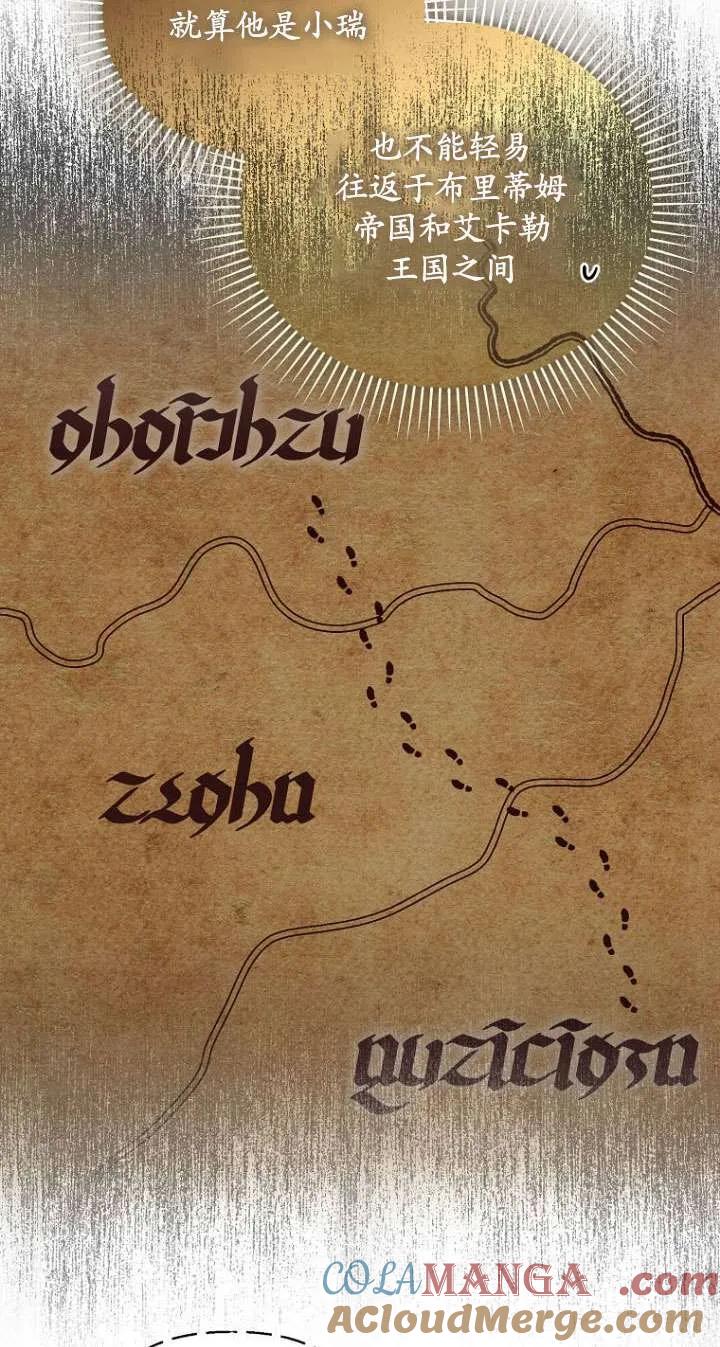 就算他是小瑞
也不能轻易
往返于布里蒂姆
帝国和艾卡勒
王国之间
COLAMANGA.com
ACloudMerge.com